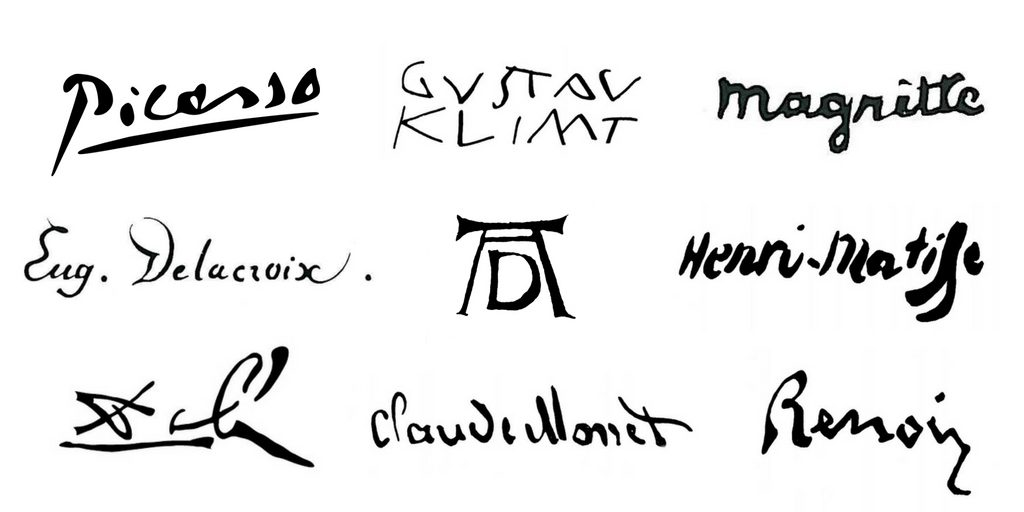 Picasso
GUSTAV
KLIMT
Magritte
Eug. Delacroix.
AD
Henri-Matisse
Dalí
Claude Monet
Renoir